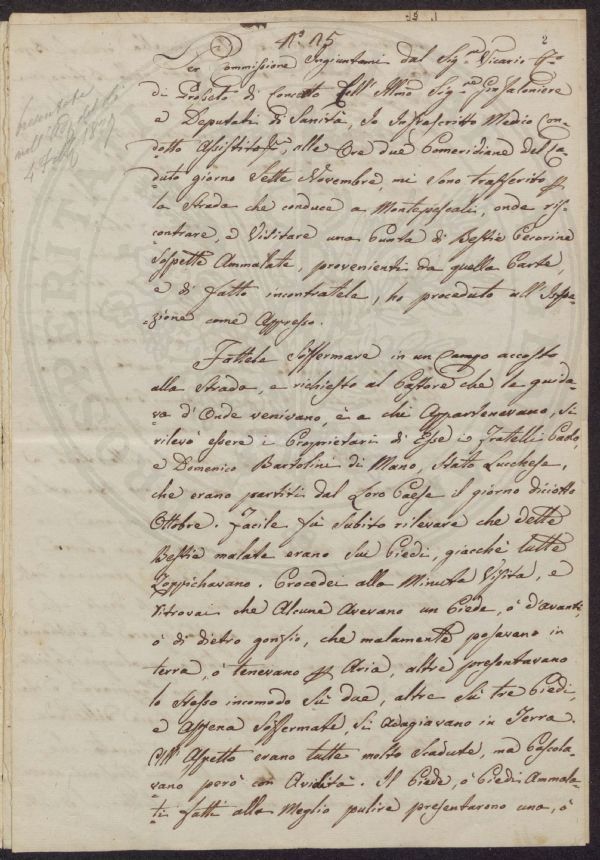 2
N.° 115
Per Commissione Ingiuntami dal Sig.re Vicario
di Concerto dell' Illmo Sig.re Gonfaloniere
e Deputati di Sanità, Io Infrascritto Medico Con-
dotto alle Ore due Pomeridiane del ca-
duto giorno Sette Novembre, mi sono trasferito p.
la Strada che conduce a Montepescali, onde ris-
contrare, e Visitare una Punta di Bestie Pecorine
Sospette Ammalate, provenienti da quella Parte,
e di fatto incontratela, ho proceduto all' Ispe-
=zione come Appresso.
Fattele Soffermare in un Campo accosto
alla Strada, e richiesto al Pastore che le guida-
va d'Onde venivano, è a chi Appartenevano, Si
rilevò essere i Proprietari di Esse i Fratelli Paolo,
e Domenico Bartolini di Mano, Stato Lucchese,
che erano partiti dal Loro Paese il giorno diciotto
Ottobre. Facile fù subito rilevare che dette
Bestie malate erano Sui Piedi, giacchè tutte
Zoppichavano. Procedei alla Minuta Visita, e
ritrovai che Alcune Avevano un Piede, ò d'avanti
ò di dietro gonfio, che malamente posavano in
terra, ò tenevano p. Aria, altre presentavano
lo stesso incomodo Sù due, altre Sù tre Piedi,
e Appena Soffermate, Si Adagiavano in Terra.
All' Aspetto erano tutte molto Scadute, ma Pascola-
vano però con Avidità. Il Piede, ò Piedi Ammala-
ti fatti alla Meglio pulire presentarono una, ò
4 1827